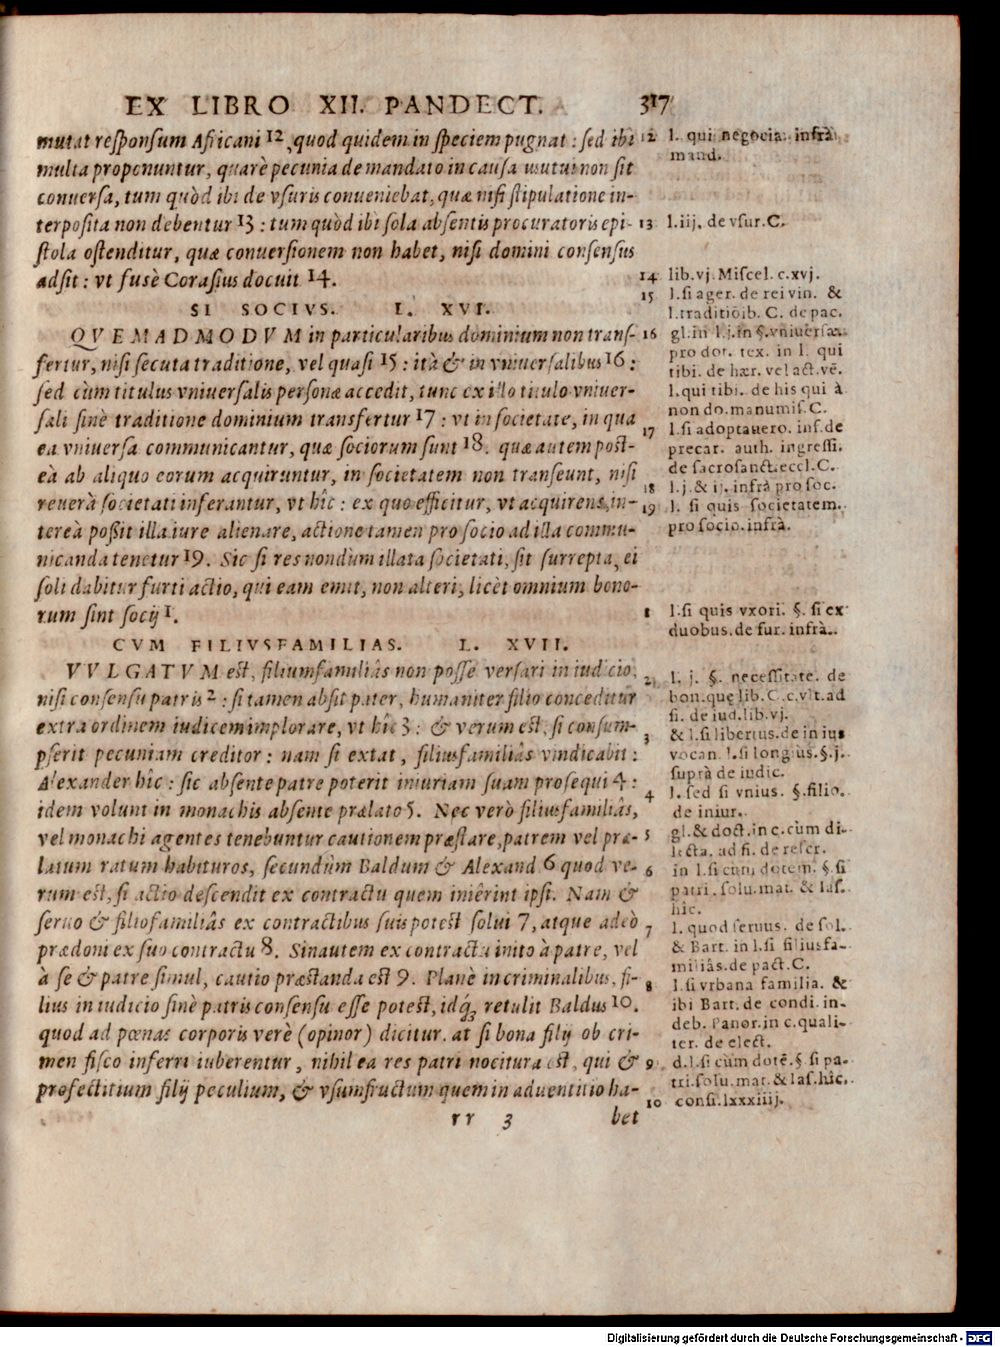 EX LIBRO XII. PANDECT. 317
mutat responsum Africani 12, quod quidem in speciem pugnat : sed ibi
multa proponuntur, quarè pecunia de mandato in causa mutui non sit
conuersa, tum quòd ibi de vsuris conueniebat, quæ nisi stipulatione in-
terposita non debentur 13 : tum quòd ibi sola absentis procuratoris epi-
stola ostenditur, quæ conuersionem non habet, nisi domini consensus
adsit : vt fusè Corasius docuit 14.
SI SOCIVS. L. XVI.
QVEMADMODVM in particularibus dominium non trans-
fertur, nisi secuta traditione, vel quasi 15 : ità & in vniuersalibus 16 :
sed cùm titulus vniuersalis personæ accedit, tunc ex illo titulo vniuer-
sali sinè traditione dominium transfertur 17 : vt in societate, in qua
ea vniuersa communicantur, quæ sociorum sunt 18. quæ autem post-
eà ab aliquo eorum acquiruntur, in societatem non transeunt, nisi
reuerà societati inferantur, vt hîc : ex quo efficitur, vt acquirens, in-
tereà poßit illa iure alienare, actione tamen pro socio ad illa commu-
nicanda tenetur 19. Sic si res nondum illata societati, sit surrepta, ei
soli dabitur furti actio, qui eam emit, non alteri, licèt omnium bono-
rum sint socij 1.
CVM FILIVSFAMILIAS. L. XVII.
VVLGATVM est, filiumfamiliâs non posse versari in iudicio,
nisi consensu patris 2 : si tamen absit pater, humaniter filio conceditur
extra ordinem iudicem implorare, vt hîc 3 : & verum est, si consum-
pserit pecuniam creditor : nam si extat, filiusfamiliâs vindicabit :
Alexander hîc : sic absente patre poterit iniuriam suam prosequi 4 :
idem volunt in monachis absente prælato 5. Nec verò filiusfamiliâs,
vel monachi agentes tenebuntur cautionem præstare, patrem vel præ-
latum ratum habituros, secundùm Baldum & Alexand. 6 quod ve-
rum est, si actio descendit ex contractu quem inierint ipsi. Nam &
seruo & filiofamiliâs ex contractibus suis potest solui 7, atque adeò
prædoni ex suo contractu 8. Sin autem ex contractu inito à patre, vel
à se & patre simul, cautio præstanda est 9. Planè in criminalibus, fi-
lius in iudicio sinè patris consensu esse potest, idq́; retulit Baldus 10.
quod ad pœnas corporis verè (opinor) dicitur. at si bona filij ob cri-
men fisco inferri iuberentur, nihil ea res patri nocitura est, qui &
profectitium filij peculium, & vsumfructum quem in aduentitio ha-
rr 3 bet
12 l. qui negocia. infrà
mand.
13 l.iij. de vsur.C.
14 lib.vj. Miscel. c.xvj.
15 l.si ager. de rei vin. &
l.traditiõib. C. de pac.
16 gl.in l.j.in §.vniuersa.
pro dot. tex. in l. qui
tibi. de hær. vel act.vẽ.
l.qui tibi. de his qui à
non do. manumis.C.
17 l.si adoptauero. inf.de
precar. auth. ingressi.
de sacrosanct.eccl.C.
18 l.j.& ij. infrà pro soc.
19 l. si quis societatem.
pro socio.infrà.
1 l.si quis vxori. §. si ex
duobus.de fur. infrà.
2 l. j. §. necessitate. de
bon.quę lib.C.c.vlt.ad
fi. de iud.lib.vj.
3 & l.si libertus.de in ius
vocan. l.si longius.§.j.
suprà de iudic.
4 l. sed si vnius. §.filio.
de iniur.
5 gl.& doct.in c.cùm di-
lecta. ad fi. de rescr.
6 in l.si cum dotem. §.si
patri. solu.mat. & Ias.
hîc.
7 l. quod seruus. de sol.
& Bart. in l.si filiusfa-
miliâs.de pact.C.
8 l.si vrbana familia. &
ibi Bart. de condi. in-
deb. Panor.in c.quali-
ter. de elect.
9 d.l.si cùm dotẽ.§ si pa-
tri.solu.mat.& Ias.hîc.
10 consi.lxxxiiij.
Digitalisierung gefördert durch die Deutsche Forschungsgemeinschaft - DFG